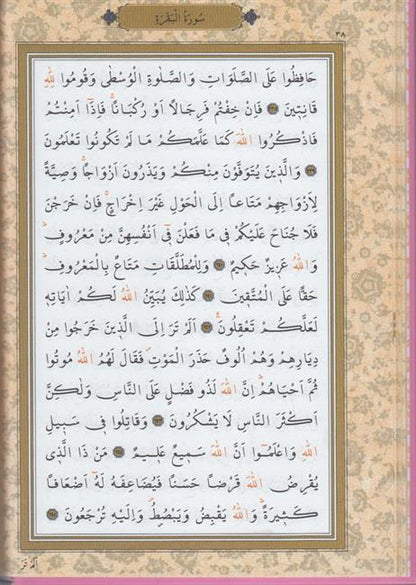 سُورَةُ الْبَقَرَةِ
٣٨
حَافِظُوا عَلَى الصَّلَوَاتِ وَالصَّلٰوةِ الْوُسْطٰى وَقُومُوا لِلّٰهِ
قَانِتٖينَ ﴿٢٣٨﴾ فَاِنْ خِفْتُمْ فَرِجَالًا اَوْ رُكْبَانًاۚ فَاِذَٓا اَمِنْتُمْ
فَاذْكُرُوا اللّٰهَ كَمَا عَلَّمَكُمْ مَا لَمْ تَكُونُوا تَعْلَمُونَ
﴿٢٣٩﴾ وَالَّذٖينَ يُتَوَفَّوْنَ مِنْكُمْ وَيَذَرُونَ اَزْوَاجًاۚ وَصِيَّةً
لِاَزْوَاجِهِمْ مَتَاعًا اِلَى الْحَوْلِ غَيْرَ اِخْرَاجٍۚ فَاِنْ خَرَجْنَ
فَلَا جُنَاحَ عَلَيْكُمْ فٖى مَا فَعَلْنَ فٖٓى اَنْفُسِهِنَّ مِنْ مَعْرُوفٍؕ
وَاللّٰهُ عَزٖيزٌ حَكٖيمٌ ﴿٢٤٠﴾ وَلِلْمُطَلَّقَاتِ مَتَاعٌ بِالْمَعْرُوفِؕ
حَقًّا عَلَى الْمُتَّقٖينَ ﴿٢٤١﴾ كَذٰلِكَ يُبَيِّنُ اللّٰهُ لَكُمْ اٰيَاتِهٖ
لَعَلَّكُمْ تَعْقِلُونَ ﴿٢٤٢﴾ اَلَمْ تَرَ اِلَى الَّذٖينَ خَرَجُوا مِنْ
دِيَارِهِمْ وَهُمْ اُلُوفٌ حَذَرَ الْمَوْتِ فَقَالَ لَهُمُ اللّٰهُ مُوتُوا
ثُمَّ اَحْيَاهُمْؕ اِنَّ اللّٰهَ لَذُو فَضْلٍ عَلَى النَّاسِ وَلٰكِنَّ
اَكْثَرَ النَّاسِ لَا يَشْكُرُونَ ﴿٢٤٣﴾ وَقَاتِلُوا فٖى سَبٖيلِ
اللّٰهِ وَاعْلَمُٓوا اَنَّ اللّٰهَ سَمٖيعٌ عَلٖيمٌ ﴿٢٤٤﴾ مَنْ ذَا الَّذٖى
يُقْرِضُ اللّٰهَ قَرْضًا حَسَنًا فَيُضَاعِفَهُ لَهُٓ اَضْعَافًا
كَثٖيرَةًؕ وَاللّٰهُ يَقْبِضُ وَيَبْصُۜطُ وَاِلَيْهِ تُرْجَعُونَ ﴿٢٤٥﴾
اَلَمْ تَرَ